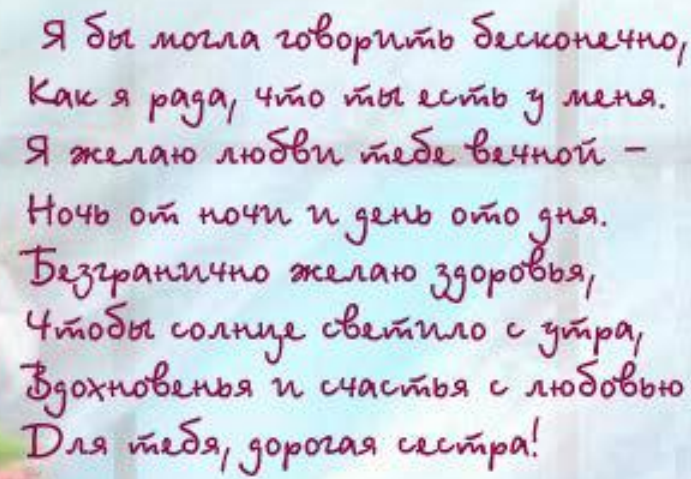 Я бы могла говорить бесконечно,
Как я рада, что ты есть у меня.
Я желаю любви тебе вечной –
Ночь от ночи и день ото дня.
Безгранично желаю здоровья,
Чтобы солнце светило с утра,
Вдохновенья и счастья с любовью
Для тебя, дорогая сестра!